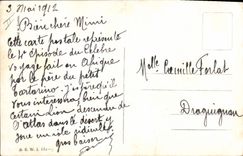 3 Mai 1912
Bien chère Mimi
Cette carte postale représente
le 4e Episode du Célèbre
voyage fait en Afrique
par le père du petit
Tartarino. J'espère qu'il
vous intéressera bien que
certain Lion
D'Atlas dans le désert y
joue un rôle
gros baiser
Melle Camille Ferlat
Draguignan